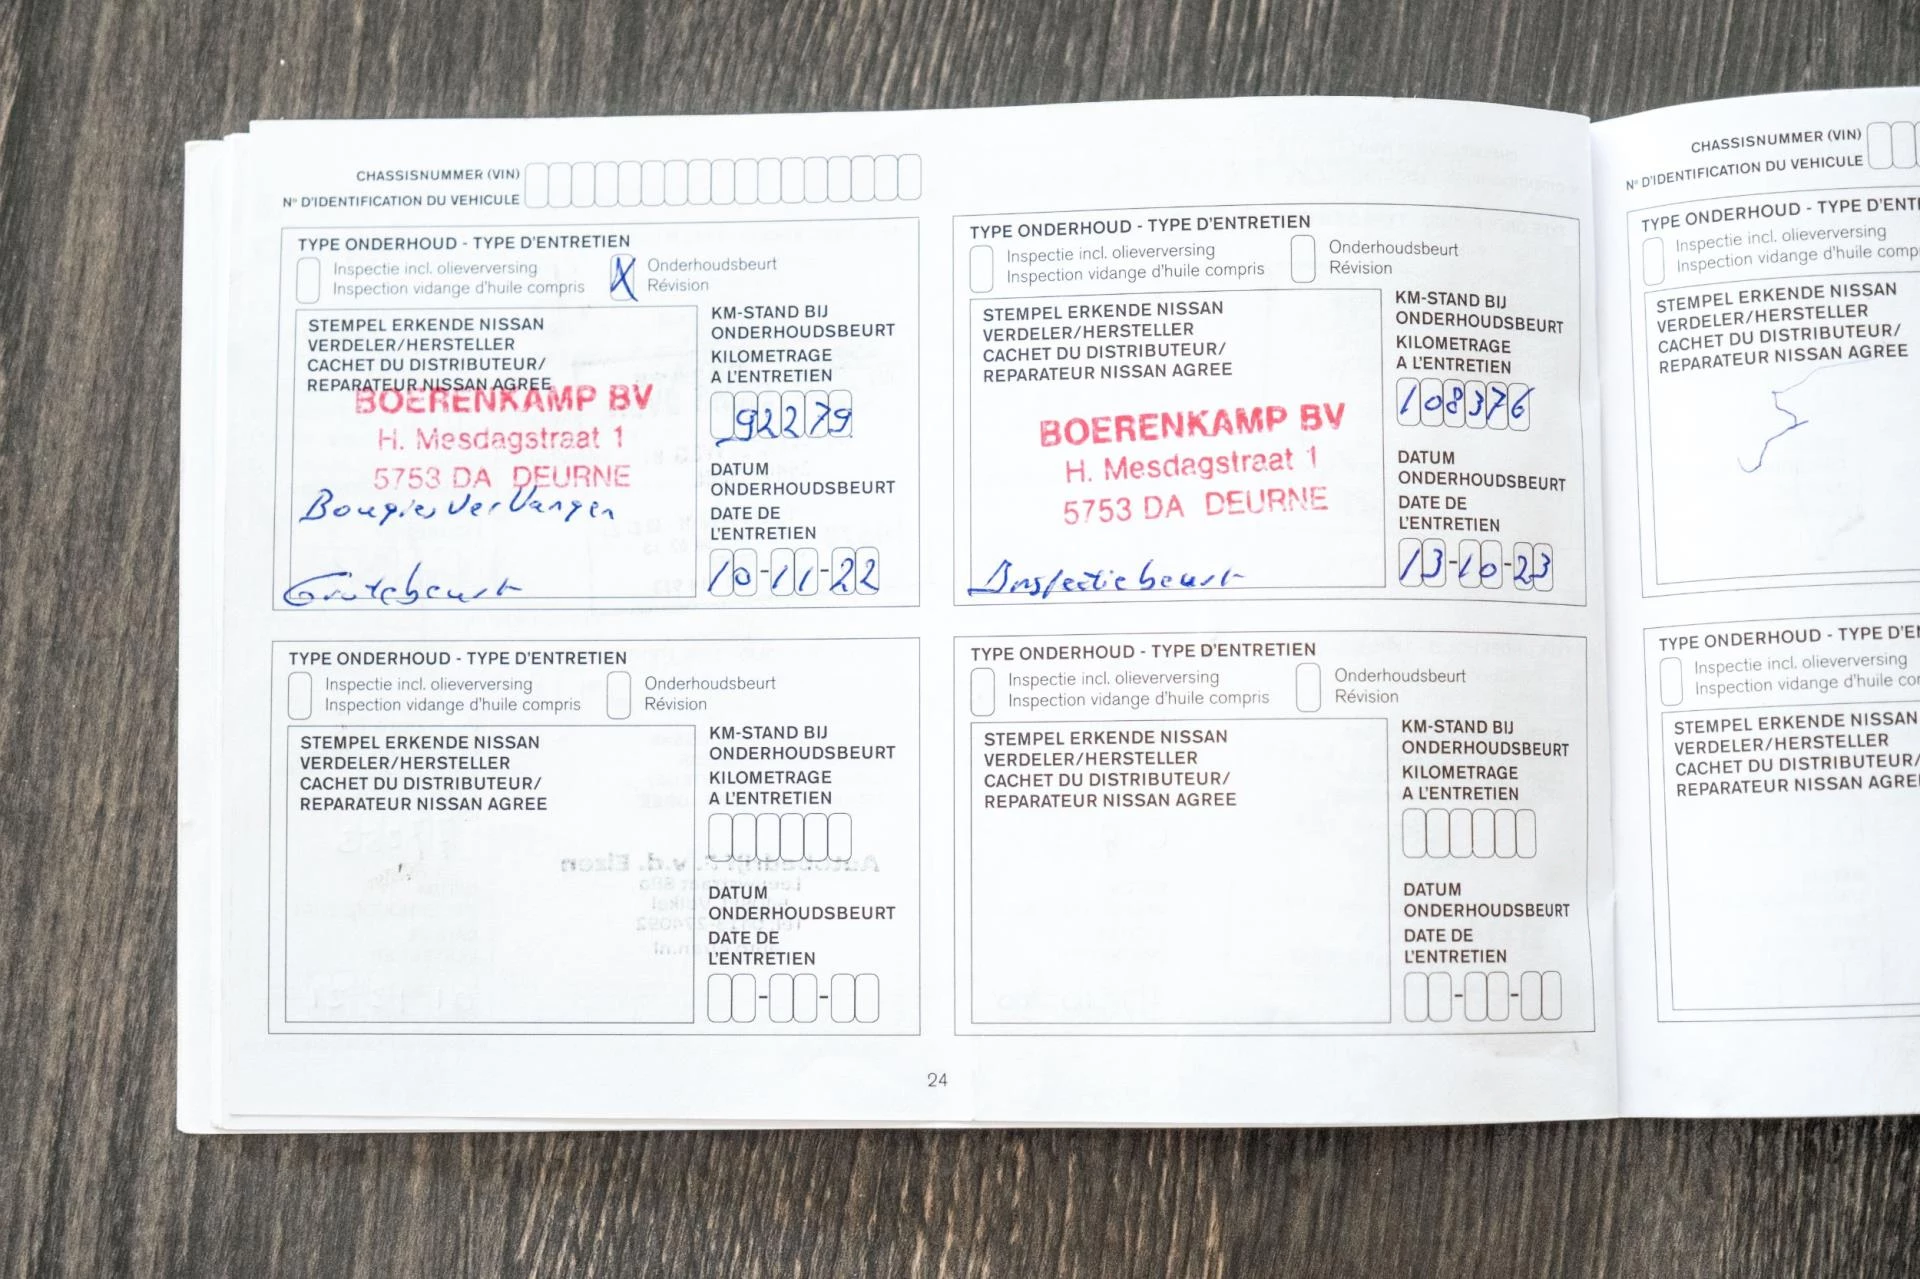 CHASSISNUMMER (VIN)
Nº D'IDENTIFICATION DU VEHICULE
TYPE ONDERHOUD - TYPE D'ENTRETIEN
Inspectie incl. olieverversing
Inspection vidange d'huile compris
X
Onderhoudsbeurt
Révision
STEMPEL ERKENDE NISSAN
VERDELER/HERSTELLER
CACHET DU DISTRIBUTEUR/
REPARATEUR NISSAN AGREE
BOERENKAMP BV
H. Mesdagstraat 1
5753 DA DEURNE
Bougies vervangen
Grotebeurt
KM-STAND BIJ
ONDERHOUDSBEURT
KILOMETRAGE
A L'ENTRETIEN
92279
DATUM
ONDERHOUDSBEURT
DATE DE
L'ENTRETIEN
10-11-22
TYPE ONDERHOUD - TYPE D'ENTRETIEN
Inspectie incl. olieverversing
Inspection vidange d'huile compris
Onderhoudsbeurt
Révision
STEMPEL ERKENDE NISSAN
VERDELER/HERSTELLER
CACHET DU DISTRIBUTEUR/
REPARATEUR NISSAN AGREE
BOERENKAMP BV
H. Mesdagstraat 1
5753 DA DEURNE
Inspectiebeurt
KM-STAND BIJ
ONDERHOUDSBEURT
KILOMETRAGE
A L'ENTRETIEN
108376
DATUM
ONDERHOUDSBEURT
DATE DE
L'ENTRETIEN
13-10-23
TYPE ONDERHOUD - TYPE D'ENTRETIEN
Inspectie incl. olieverversing
Inspection vidange d'huile compris
Onderhoudsbeurt
Révision
STEMPEL ERKENDE NISSAN
VERDELER/HERSTELLER
CACHET DU DISTRIBUTEUR/
REPARATEUR NISSAN AGREE
KM-STAND BIJ
ONDERHOUDSBEURT
KILOMETRAGE
A L'ENTRETIEN
DATUM
ONDERHOUDSBEURT
DATE DE
L'ENTRETIEN
TYPE ONDERHOUD - TYPE D'ENTRETIEN
Inspectie incl. olieverversing
Inspection vidange d'huile compris
Onderhoudsbeurt
Révision
STEMPEL ERKENDE NISSAN
VERDELER/HERSTELLER
CACHET DU DISTRIBUTEUR/
REPARATEUR NISSAN AGREE
KM-STAND BIJ
ONDERHOUDSBEURT
KILOMETRAGE
A L'ENTRETIEN
DATUM
ONDERHOUDSBEURT
DATE DE
L'ENTRETIEN
24
CHASSISNUMMER (VIN)
Nº D'IDENTIFICATION DU VEHICULE
TYPE ONDERHOUD - TYPE D'ENT
Inspectie incl. olieverversing
Inspection vidange d'huile comp
STEMPEL ERKENDE NISSAN
VERDELER/HERSTELLER
CACHET DU DISTRIBUTEUR/
REPARATEUR NISSAN AGREE
TYPE ONDERHOUD - TYPE D'E
Inspectie incl. olieverversing
Inspection vidange d'huile co
STEMPEL ERKENDE NISSAN
VERDELER/HERSTELLER
CACHET DU DISTRIBUTEUR/
REPARATEUR NISSAN AGRE